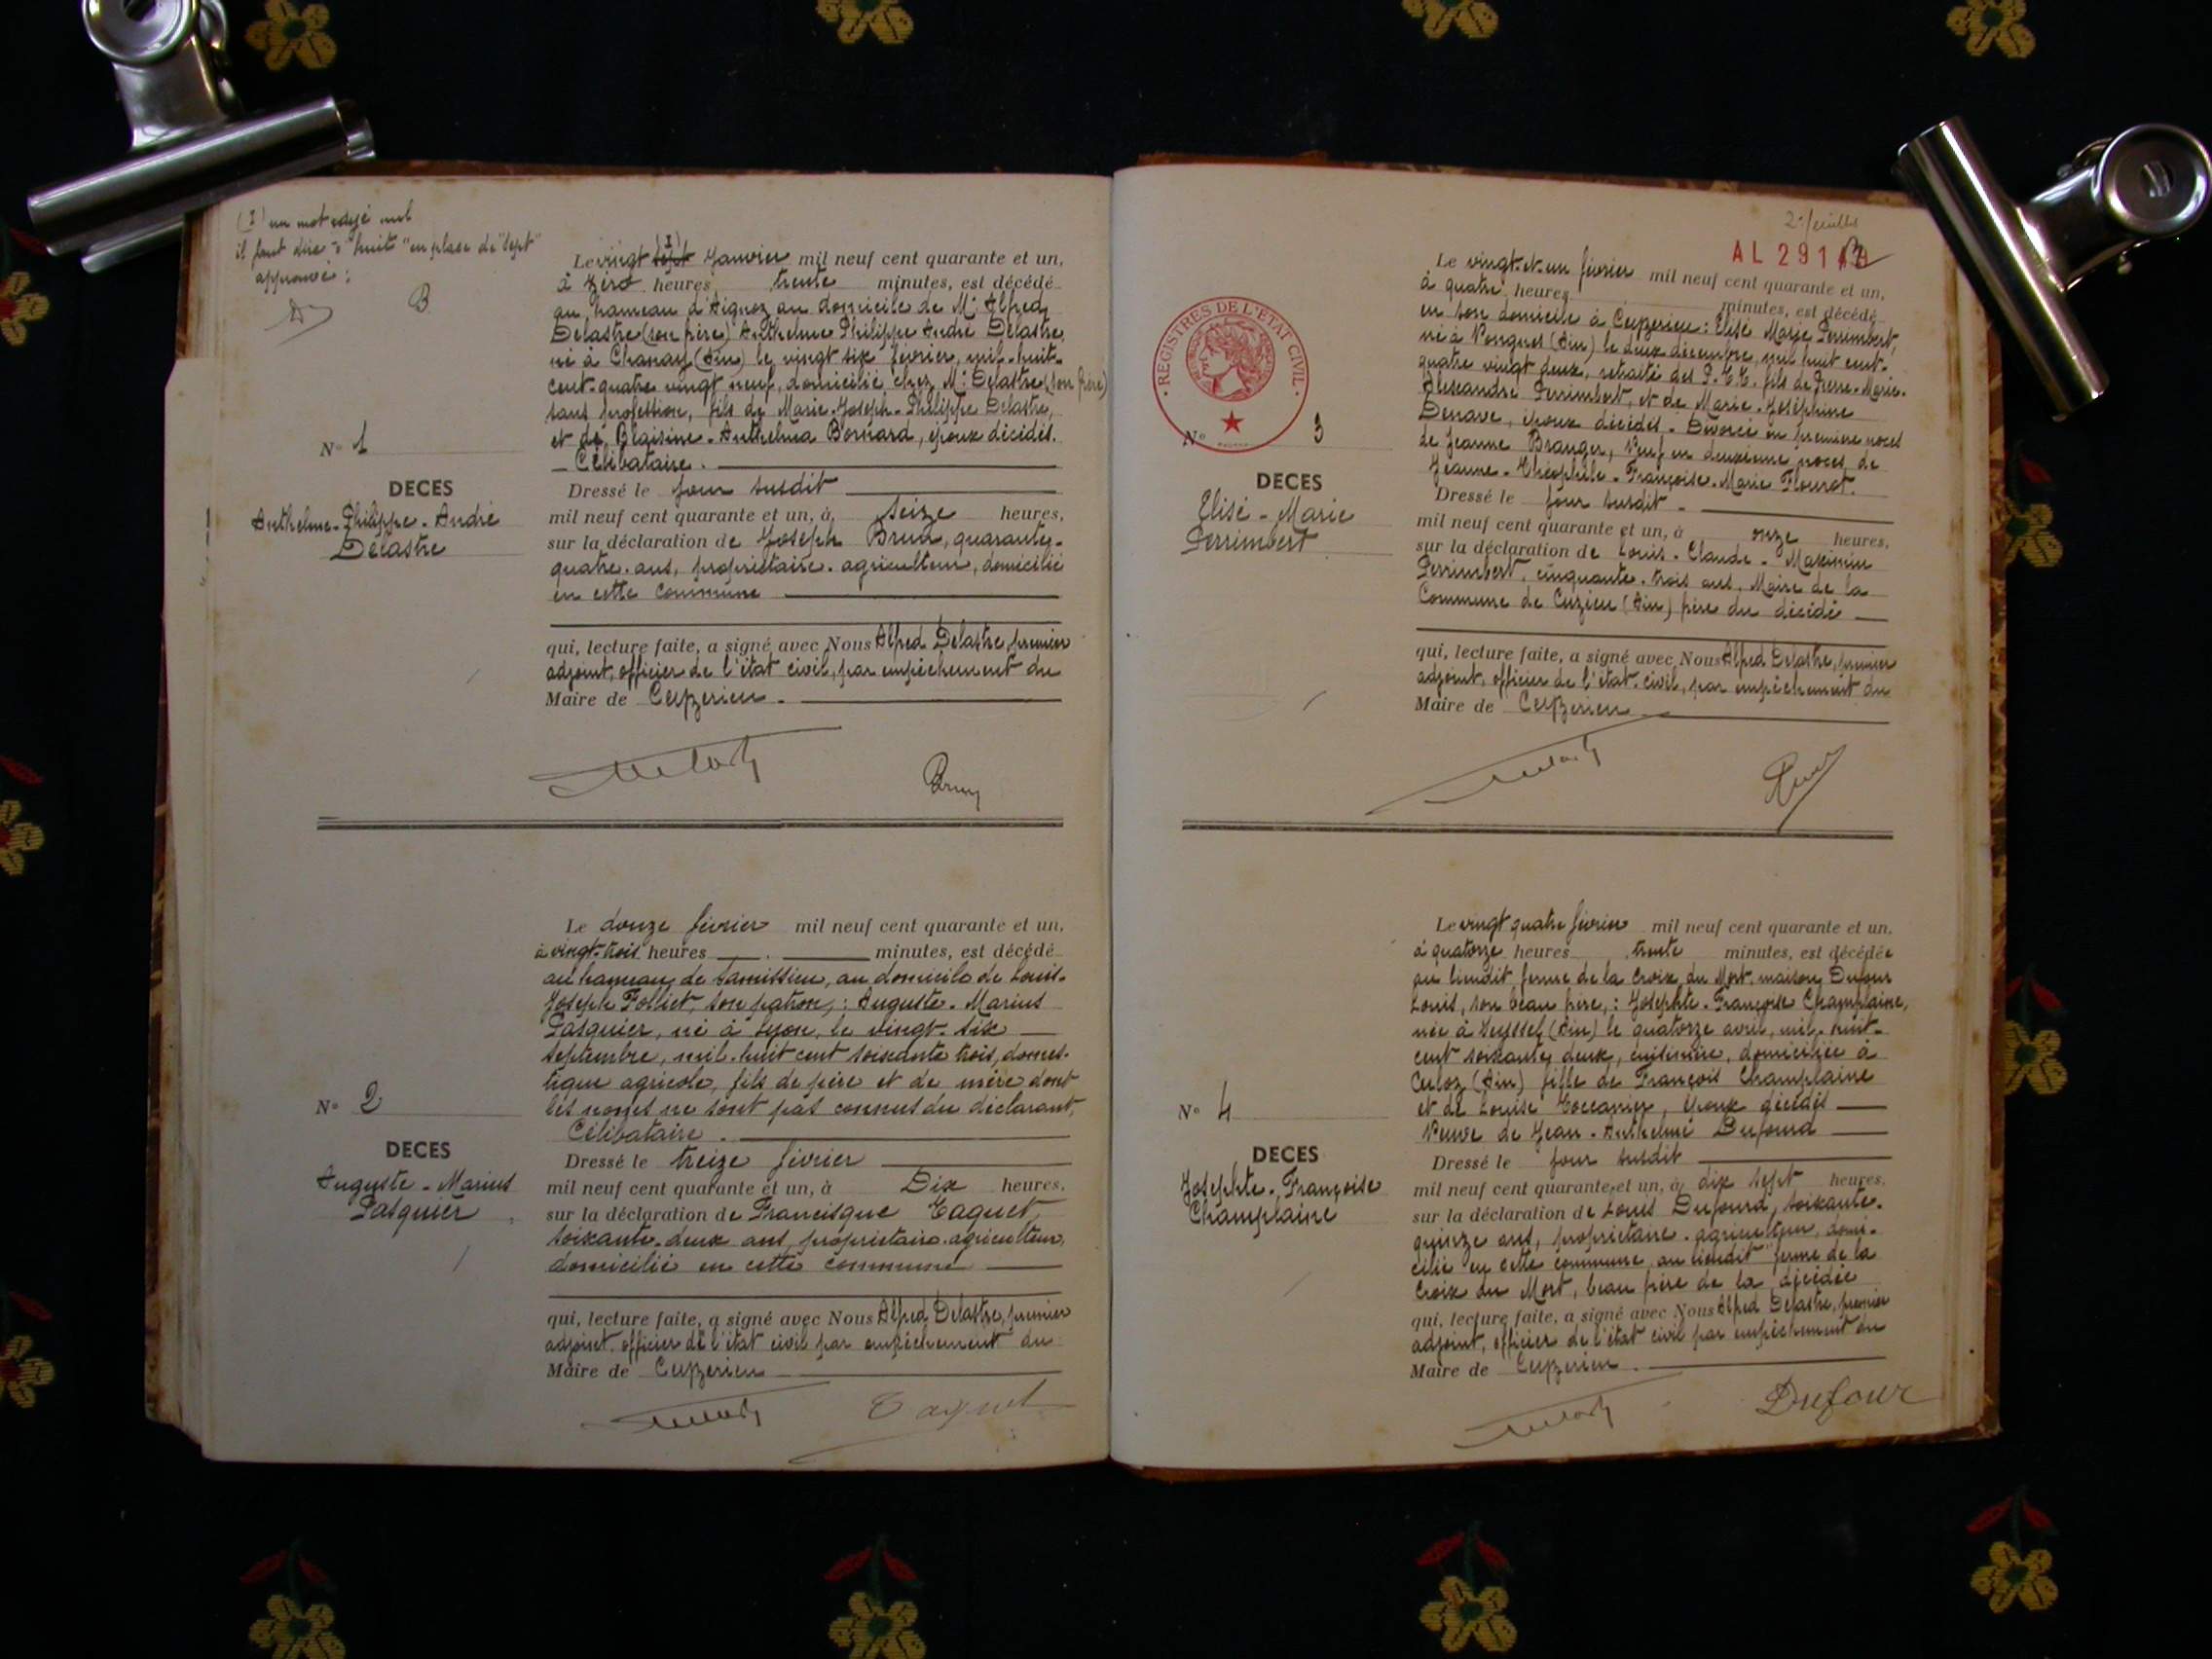 (I) un mot rayé nul
il faut dire : "huit" en place de "sept"
approuvé :
B
Le vingt sept (I) Janvier mil neuf cent quarante et un,
à zéro heures trente minutes, est décédé
au hameau d'Aignoz au domicile de Mr Alfred
Delastre (son frère) Anthelme Philippe André Delastre
né à Chanay (Ain) le vingt six février, mil-huit-
cent-quatre vingt neuf, domicilié chez Mr Delastre (son frère)
sans profession, fils de Marie-Joseph-Philippe Delastre,
et de Blaisine-Anthelma Bornard, époux décédés.
Célibataire.
N° 1
DECES
Anthelme-Philippe-André
Delastre
Dressé le jour susdit
mil neuf cent quarante et un, à seize heures,
sur la déclaration de Joseph Brun, quarante-
quatre ans, propriétaire-agriculteur, domicilié
en cette commune
qui, lecture faite, a signé avec Nous Alfred Delastre, premier
adjoint, officier de l'état civil, par empêchement du
Maire de Ceyzerieu.
Brun
Le douze février mil neuf cent quarante et un,
à vingt-trois heures minutes, est décédé
au hameau de Vamissieu, au domicile de Louis-
Joseph Folliet, son patron, : Auguste-Marius
Pasquier, né à Lyon, le vingt-six
septembre, mil-huit cent soixante trois, domes-
tique agricole, fils de père et de mère dont
les noms ne sont pas connus du déclarant,
Célibataire.
N° 2
DECES
Auguste-Marius
Pasquier
Dressé le treize février
mil neuf cent quarante et un, à Dix heures,
sur la déclaration de Francisque Taguet,
soixante-deux ans, propriétaire-agriculteur,
domicilié en cette commune
qui, lecture faite, a signé avec Nous Alfred Delastre, premier
adjoint, officier de l'état civil par empêchement du
Maire de Ceyzerieu
Taguet
2e feuillet
AL 291
REGISTRES DE L'ETAT CIVIL
Le vingt-et-un février mil neuf cent quarante et un,
à quatre heures minutes, est décédé
en son domicile à Ceyzerieu : Elisé Marie Perrimbert,
né à Vongnes (Ain) le deux décembre, mil huit cent-
quatre vingt deux, retraité des P.T.T. fils de Pierre-Marie-
Alexandre Perrimbert, et de Marie-Joséphine
Derave, époux décédés. Divorcé en première noces
de Jeanne Branger, Veuf en deuxième noces de
Jeanne-Théophile-Françoise-Marie Flourot.
N° 3
DECES
Elisé-Marie
Perrimbert
Dressé le jour susdit.
mil neuf cent quarante et un, à onze heures,
sur la déclaration de Louis-Claude-Maximin
Perrimbert, cinquante-trois ans, Maire de la
Commune de Cuzieu (Ain) frère du décédé
qui, lecture faite, a signé avec Nous Alfred Delastre, premier
adjoint, officier de l'état-civil, par empêchement du
Maire de Ceyzerieu
Le vingt quatre février mil neuf cent quarante et un,
à quatorze heures trente minutes, est décédée
au lieudit ferme de la Croix du Mort, maison Dufour
Louis, son beau frère, : Josephte-Françoise Champlaine,
née à Seyssel (Ain) le quatorze avril, mil-huit-
cent soixante deux, cuisinière, domiciliée à
Culoz (Ain) fille de François Champlaine
et de Louise Toccanier, époux décédés
Veuve de Jean-Anthelme Dufourd
N° 4
DECES
Josephte-Françoise
Champlaine
Dressé le jour susdit
mil neuf cent quarante et un, à dix sept heures,
sur la déclaration de Louis Dufourd, soixante-
quinze ans, propriétaire-agriculteur, domi-
cilié en cette commune au lieudit "ferme de la
Croix du Mort, beau frère de la décédée
qui, lecture faite, a signé avec Nous Alfred Delastre, premier
adjoint, officier de l'état civil par empêchement du
Maire de Ceyzerieu.
Dufour